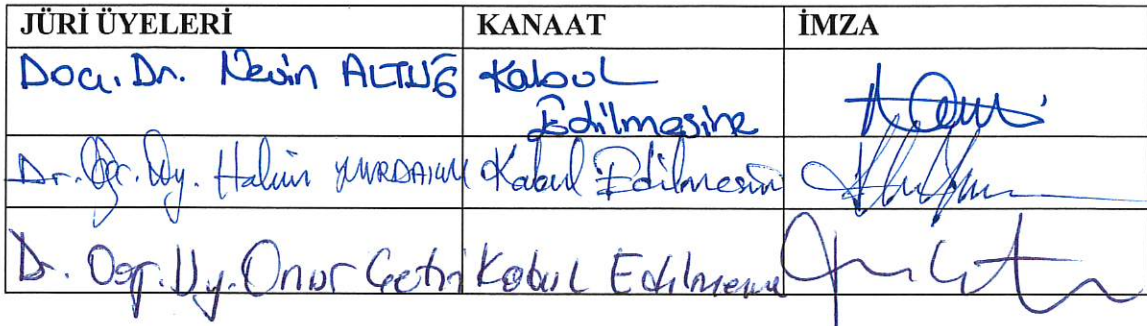 JÜRİ ÜYELERİ KANAAT İMZA
Doç. Dr. Nevin ALTUĞ Kabul
Edilmesine
Dr. Öğr. Üy. Halim Kabul Edilmesine
Dr. Öğr. Üy. Onur Çetin Kabul Edilmesine